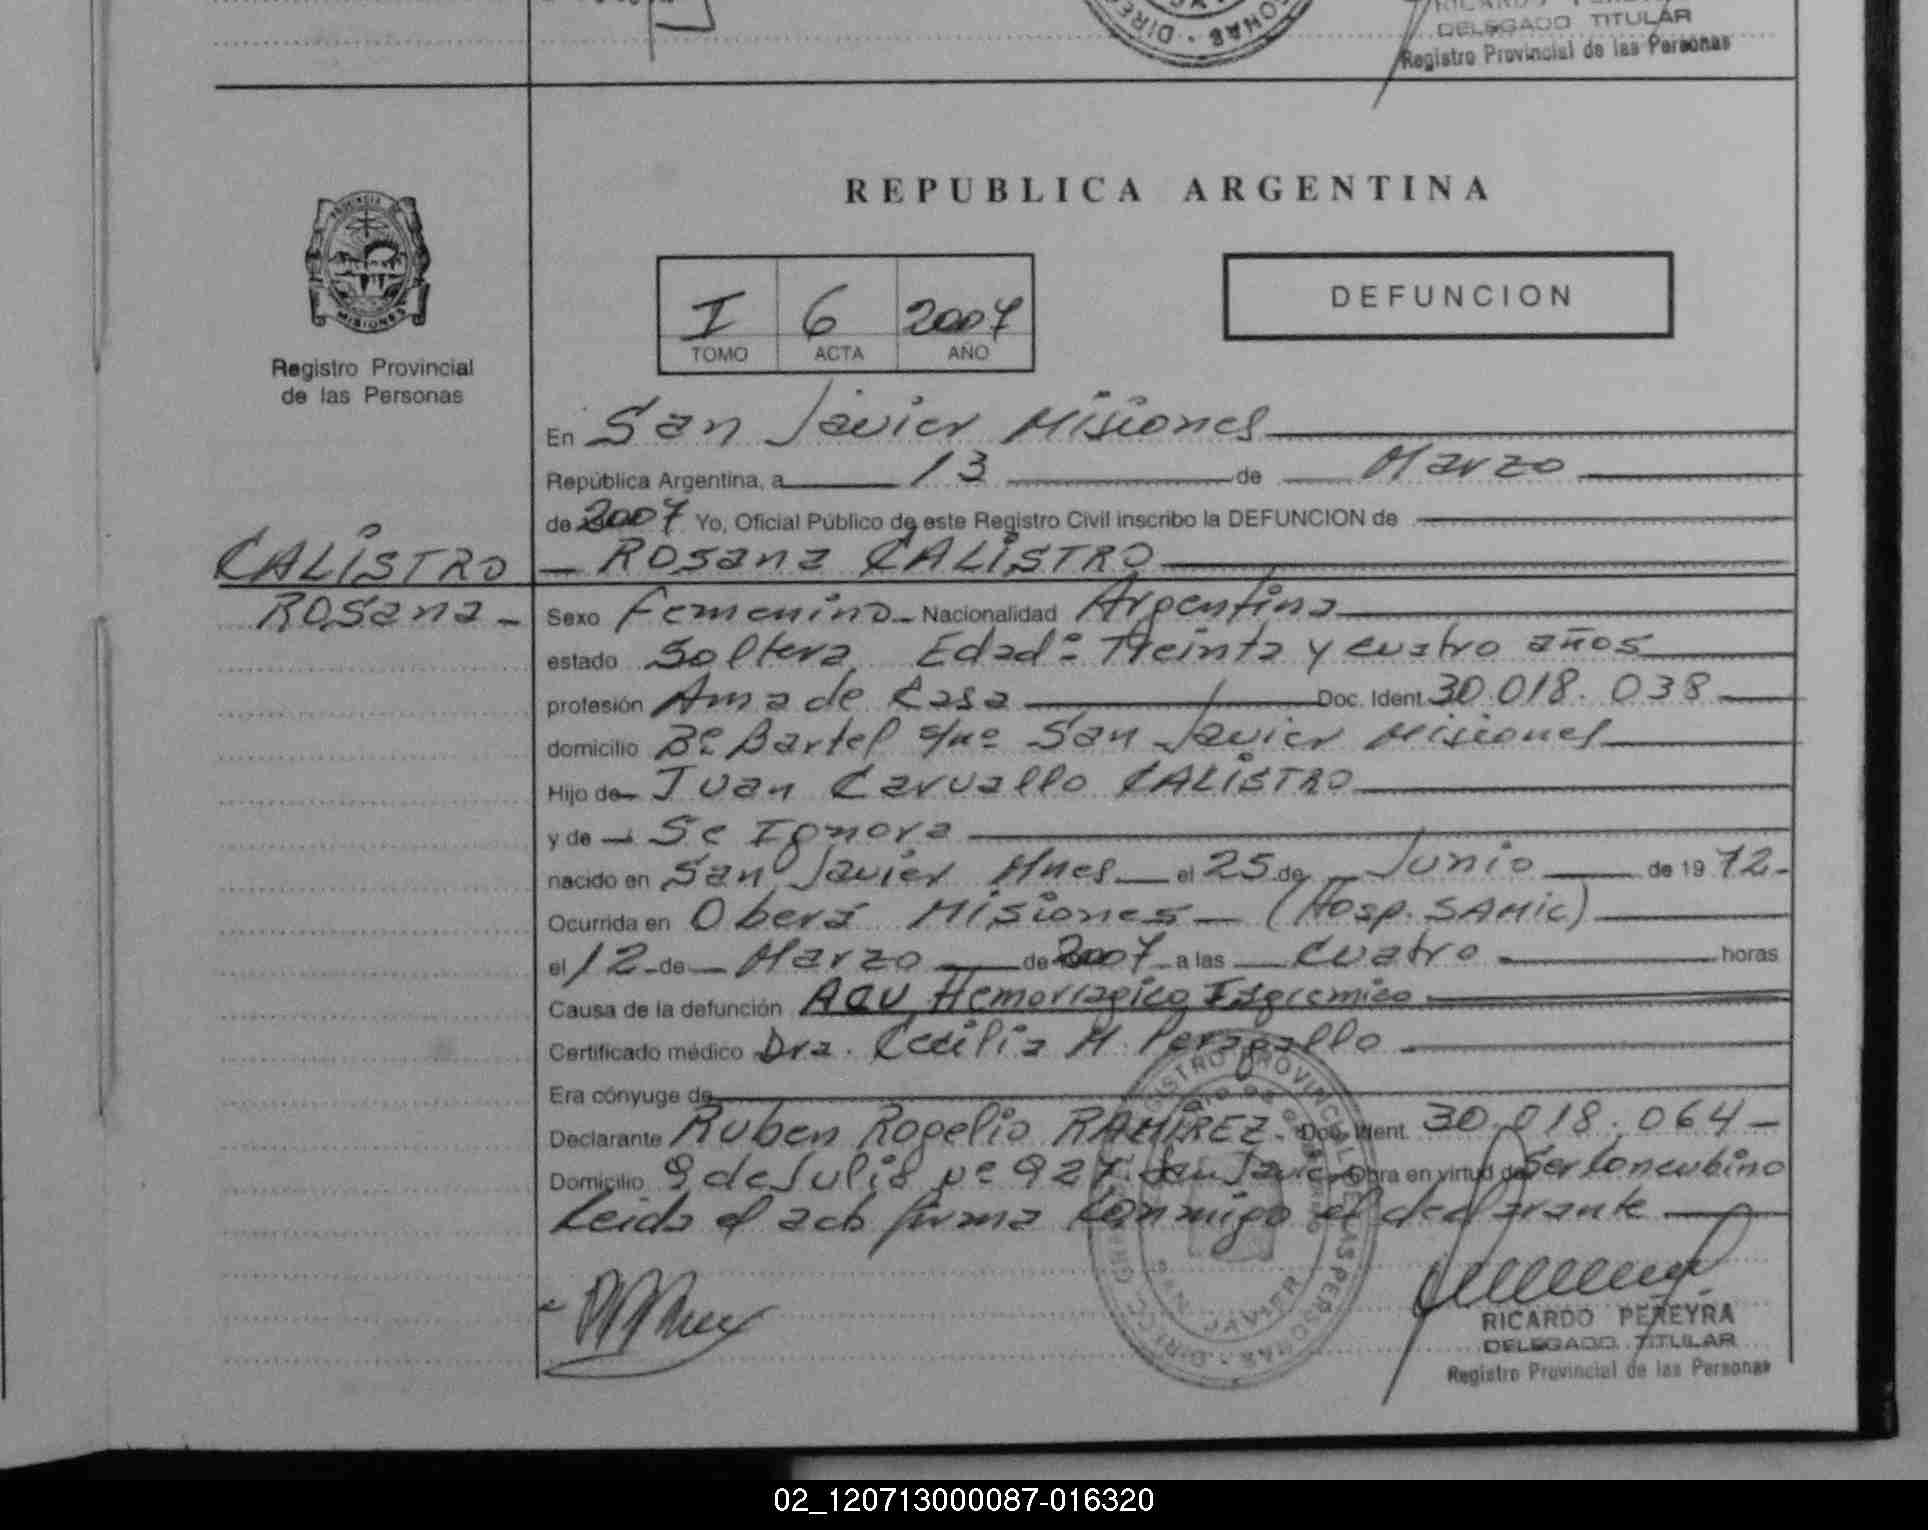 RICARDO PEREYRA
DELEGADO TITULAR
Registro Provincial de las Personas
REPUBLICA ARGENTINA
PROVINCIA DE
MISIONES
Registro Provincial
de las Personas
I 6 2007
TOMO ACTA AÑO
DEFUNCION
En San Javier Misiones
República Argentina, a 13 de Marzo
de 2007 Yo, Oficial Público de este Registro Civil inscribo la DEFUNCION de
CALISTRO
Rosana
Rosana CALISTRO
Sexo Femenino Nacionalidad Argentina
estado Soltera Edad: Treinta y cuatro años
profesión Ama de Casa Doc. Ident. 30.018.038
domicilio Bº Bartel s/nº San Javier Misiones
Hijo de Juan Carvallo CALISTRO
y de Se Ignora
nacido en San Javier Mnes el 25 de Junio de 1972
Ocurrida en Oberá Misiones (Hosp. SAMIC)
el 12 de Marzo de 2007 a las cuatro horas
Causa de la defunción ACV Hemorragico Isqremico
Certificado médico Dra. Cecilia M. Peragallo
Era cónyuge de
Declarante Ruben Rogelio RAMIREZ Doc. Ident. 30.018.064
Domicilio 9 de Julio nº 927 San Javier Obra en virtud de Ser Concubino
Leido el acto firma conmigo el declarante
RICARDO PEREYRA
DELEGADO TITULAR
Registro Provincial de las Personas
02_120713000087-016320